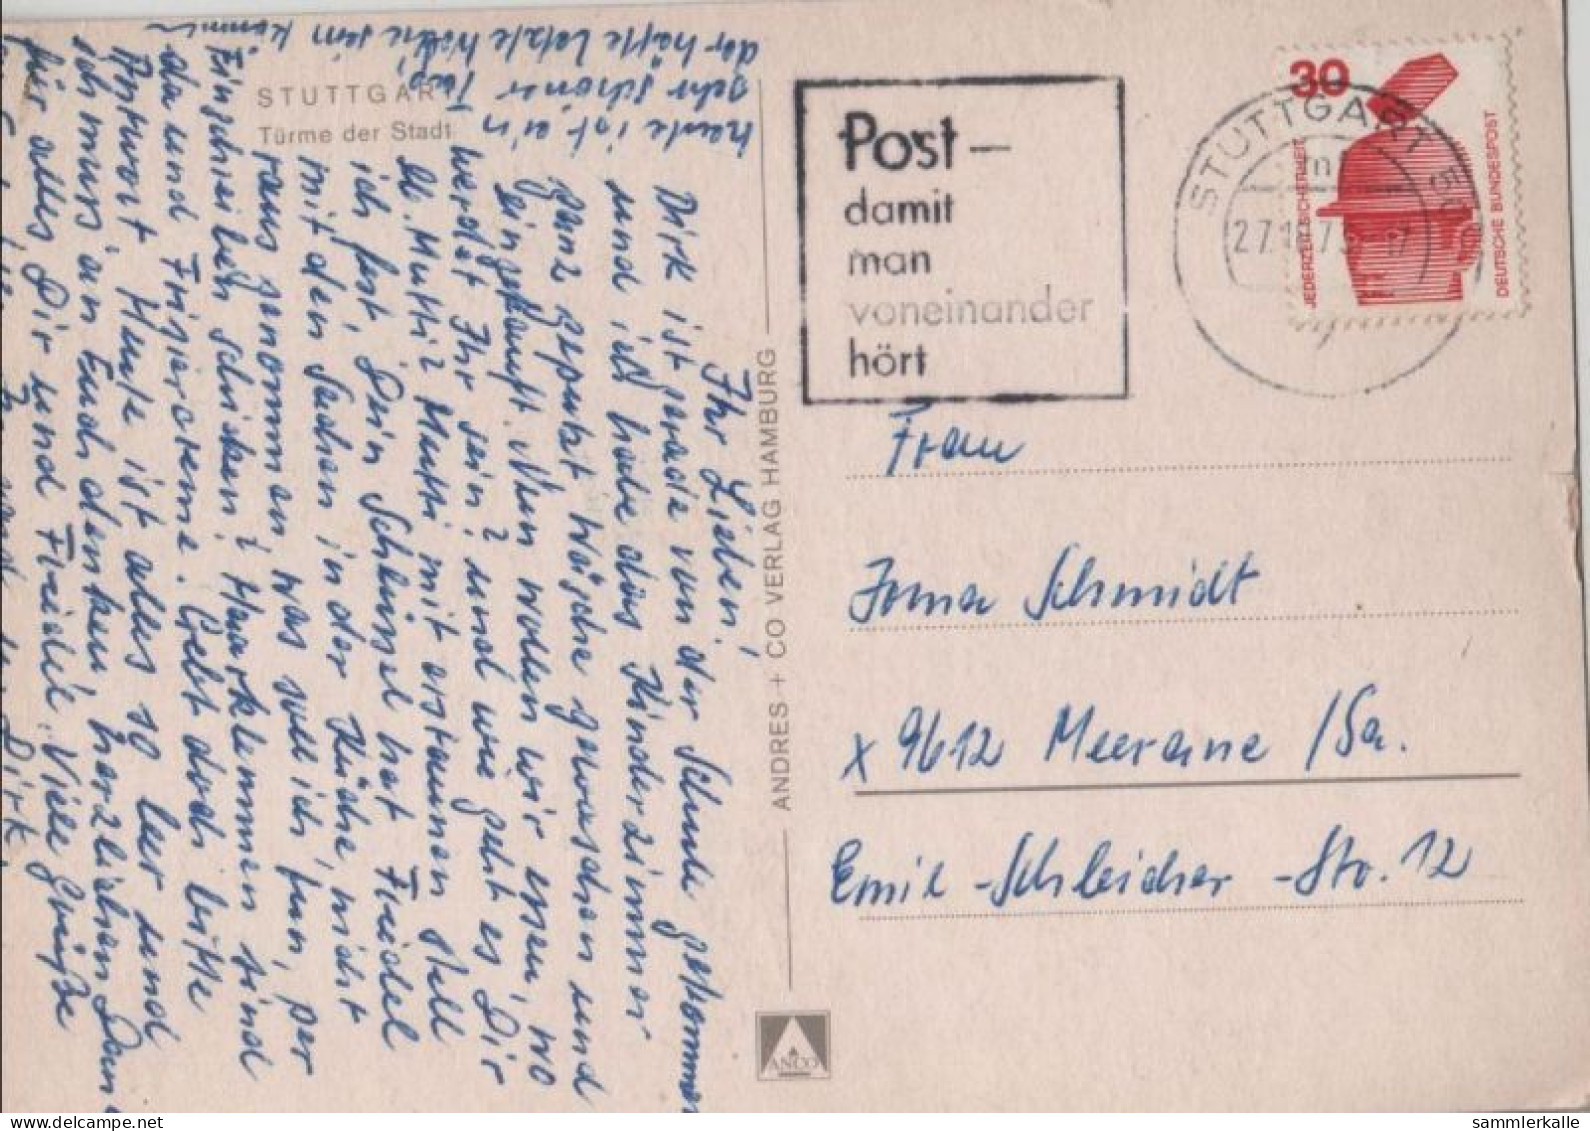 STUTTGART
Türme der Stadt
Ihr Lieben,
Dirk ist gerade von der Schule gekommen
und ich habe das Kinderzimmer
ganz geputzt Wäsche gewaschen und
eingekauft. Nun wollen wir essen, wo
werdet Ihr sein? und wie geht es Dir
lb. Mutti? Mutti mit erstaunen stell
ich fest, Dein Schlüssel hat Friedel
mit den Sachen in der Küche, nicht
raus genommen, was soll ich tun, per
Einschreiben schicken? Haarklemmen sind
da und Frisiercreme. Gebt doch bitte
Antwort. Heute ist alles so leer und
ich muss an Euch denken, herzlichen Dank
für alles Dir und Friedel. Viele Grüße
Dirk.
heute ist ein
sehr schöner Tag
der hätte letzte Woche sein können
ANDRES + CO VERLAG HAMBURG
ANCO
Post –
damit
man
voneinander
hört
STUTTGART 50
27. 73. 17
30
JEDERZEIT SICHERHEIT
DEUTSCHE BUNDESPOST
Frau
Irma Schmidt
X 9612 Meerane /Sa.
Emil-Schleicher-Str. 12
© sammlerkalle